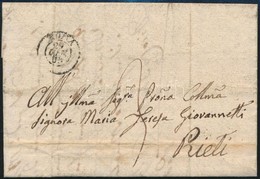 ROMA
All' Illma Sigra Prona Colma
Signora Maria Teresa Giovannetti
Rieti